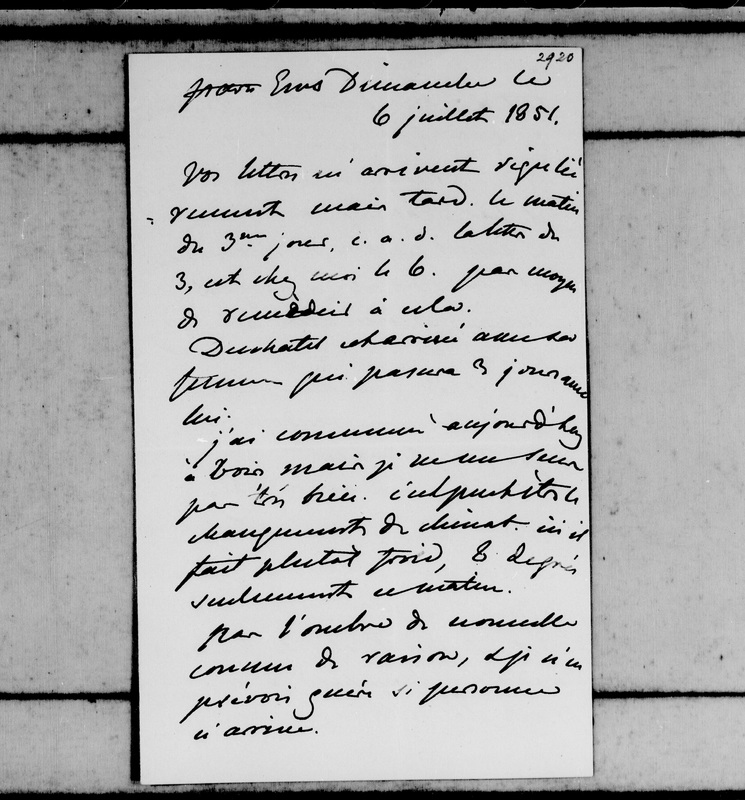 2920
Ems Dimanche le
6 juillet 1851.
Vos lettres m'arrivent réguliè
rement mais tard. le matin
du 3me jour, c. a. d. la lettre du
3, est chez moi le 6. pas moyen
de remédier à cela.
Duchatel est arrivé avec sa
femme qui passera 3 jours avec
lui.
j'ai commencé aujourd'huy
à boire mais je ne me sens
pas très bien. c'est peut être le
changement de climat. ici il
fait plutôt froid, 8 degrés
seulement ce matin.
pas l'ombre de nouvelle
comme de raison, & je n'en
prévois guère si personne
n'arrive.